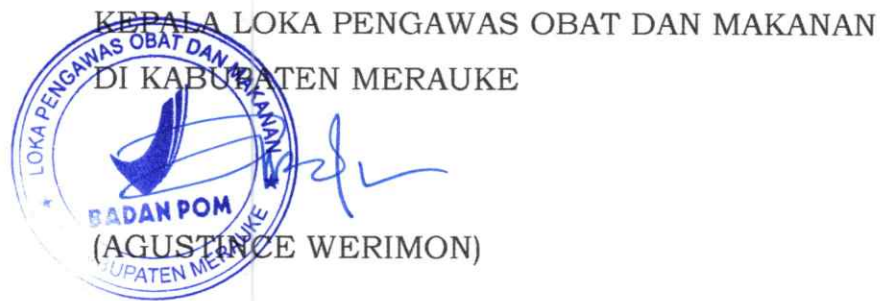 KEPALA LOKA PENGAWAS OBAT DAN MAKANAN
DI KABUPATEN MERAUKE
LOKA PENGAWAS OBAT DAN MAKANAN
BADAN POM
KABUPATEN MERAUKE
(AGUSTINCE WERIMON)